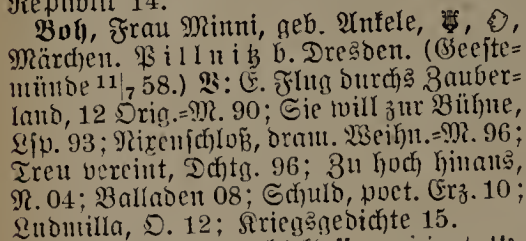 Republik 14.
Boh, Frau Minni, geb. Ankele,
Märchen. Pillnitz b. Dresden. (Geeste-
münde 11|7 58.) V: E. Flug durchs Zauber-
land, 12 Orig.=M. 90; Sie will zur Bühne,
Lsp. 93; Nixenschloß, dram. Weihn.=M. 96;
Treu vereint, Dchtg. 96; Zu hoch hinaus,
N. 04; Balladen 08; Schuld, poet. Erz. 10;
Ludmilla, O. 12; Kriegsgedichte 15.